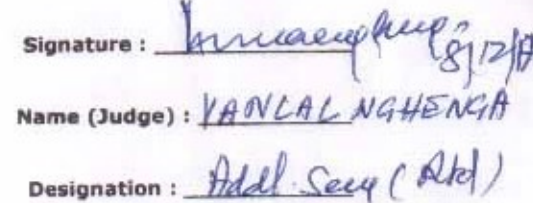 Signature :
Name (Judge) : VANLAL NGHENGA
Designation : Addl. Secy (Rtd)